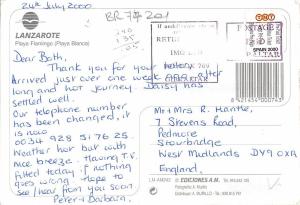 24th July 2000
BR 7 201
LANZAROTE
Playa Flamingo (Playa Blanca)
Dear Both,
Thank you for your letter.
Arrived just over one week ago after
long and hot journey. Daisy has
settled well.
Our telephone number
has been changed, it
is now
0034 928 51 76 25.
Weather hot but with
nice breeze. Having T.V.
fitted today if nothing
goes wrong. Hope to
see/hear from you soon.
Peter & Barbara.
If
RETU
IMG
GIBRALTAR
TNT
POSTAGE
SPAIN 2000
8 421454 000743
Mr & Mrs R. Hantke,
7 Stevens Road,
Pedmore
Stourbridge
West Midlands DY9 0XA
ENGLAND.
EDICIONES A.M.